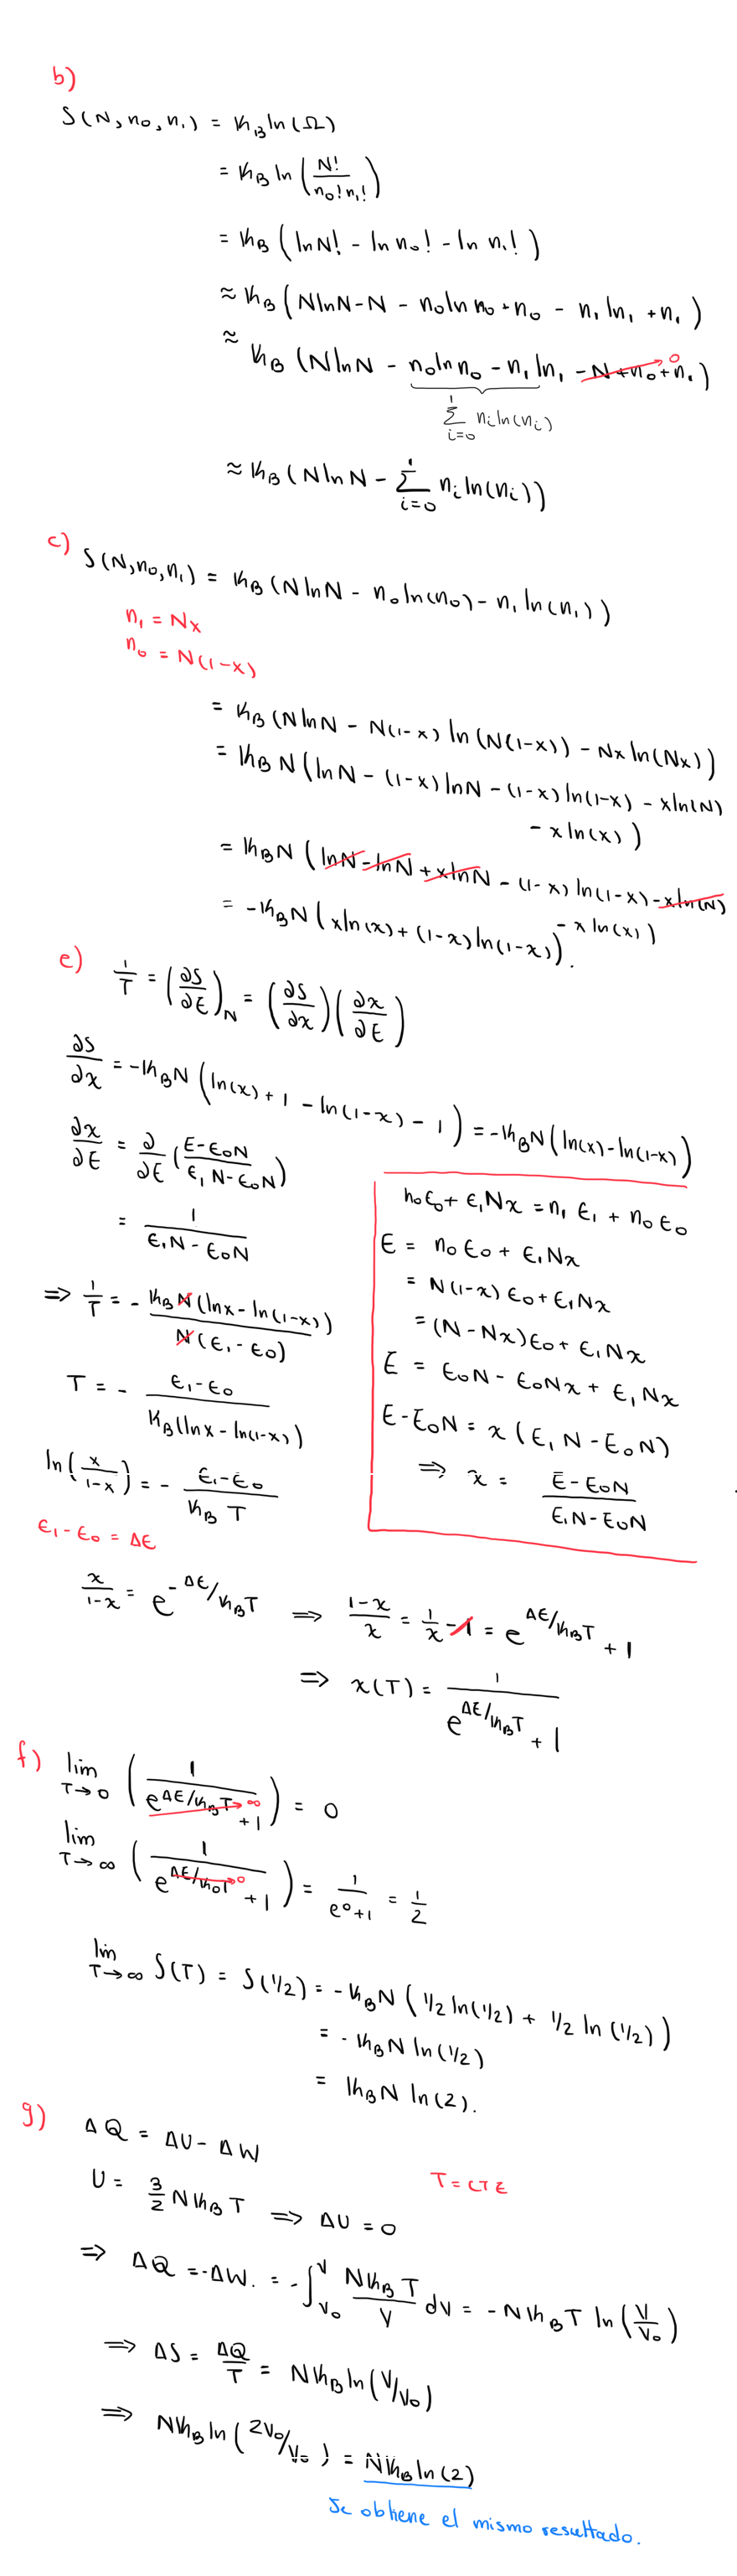 b)
S(N, n₀, n₁) = k_B ln(Ω)
= k_B ln (N! / n₀! n₁!)
= k_B (ln N! - ln n₀! - ln n₁!)
≈ k_B (N ln N - N - n₀ ln n₀ + n₀ - n₁ ln₁ + n₁)
≈ k_B (N ln N - n₀ ln n₀ - n₁ ln₁ - N + n₀ + n₁) 0
∑_{i=0}^{1} nᵢ ln(nᵢ)
≈ k_B (N ln N - ∑_{i=0}^{1} nᵢ ln(nᵢ))
c) S(N, n₀, n₁) = k_B (N ln N - n₀ ln(n₀) - n₁ ln(n₁))
n₁ = Nx
n₀ = N(1-x)
= k_B (N ln N - N(1-x) ln(N(1-x)) - Nx ln(Nx))
= k_B N (ln N - (1-x) ln N - (1-x) ln(1-x) - x ln(N)
- x ln(x))
= k_B N (ln N - ln N + x ln N - (1-x) ln(1-x) - x ln(N)
- x ln(x))
= -k_B N (x ln(x) + (1-x) ln(1-x)).
e) 1/T = (∂S/∂E)_N = (∂S/∂x)(∂x/∂E)
∂S/∂x = -k_B N (ln(x) + 1 - ln(1-x) - 1) = -k_B N (ln(x) - ln(1-x))
∂x/∂E = ∂/∂E ((E - ε₀N)/(ε₁N - ε₀N))
= 1/(ε₁N - ε₀N)
⇒ 1/T = - k_B N (ln x - ln(1-x)) / N(ε₁ - ε₀)
T = - (ε₁ - ε₀) / k_B (ln x - ln(1-x))
ln(x/(1-x)) = - (ε₁ - ε₀)/(k_B T)
ε₁ - ε₀ = Δε
n₀ε₀ + ε₁Nx = n₁ε₁ + n₀ε₀
E = n₀ε₀ + ε₁Nx
= N(1-x)ε₀ + ε₁Nx
= (N - Nx)ε₀ + ε₁Nx
E = ε₀N - ε₀Nx + ε₁Nx
E - ε₀N = x(ε₁N - ε₀N)
⇒ x = (E - ε₀N)/(ε₁N - ε₀N)
x/(1-x) = e^{-Δε/k_B T} ⇒ (1-x)/x = 1/x - 1 = e^{Δε/k_B T} + 1
⇒ x(T) = 1/(e^{Δε/k_B T} + 1)
f) lim_{T→0} (1/(e^{Δε/k_B T} + 1)) ∞ = 0
lim_{T→∞} (1/(e^{Δε/k_B T} + 1)) 0 = 1/(e⁰+1) = 1/2
lim_{T→∞} S(T) = S(1/2) = -k_B N (1/2 ln(1/2) + 1/2 ln(1/2))
= -k_B N ln(1/2)
= k_B N ln(2).
g) ΔQ = ΔU - ΔW
T = CTE
U = 3/2 N k_B T ⇒ ΔU = 0
⇒ ΔQ = -ΔW. = -∫_{V₀}^{V} (N k_B T / V) dV = -N k_B T ln(V/V₀)
⇒ ΔS = ΔQ/T = N k_B ln(V/V₀)
⇒ N k_B ln(2V₀/V₀) = N k_B ln(2)
Se obtiene el mismo resultado.